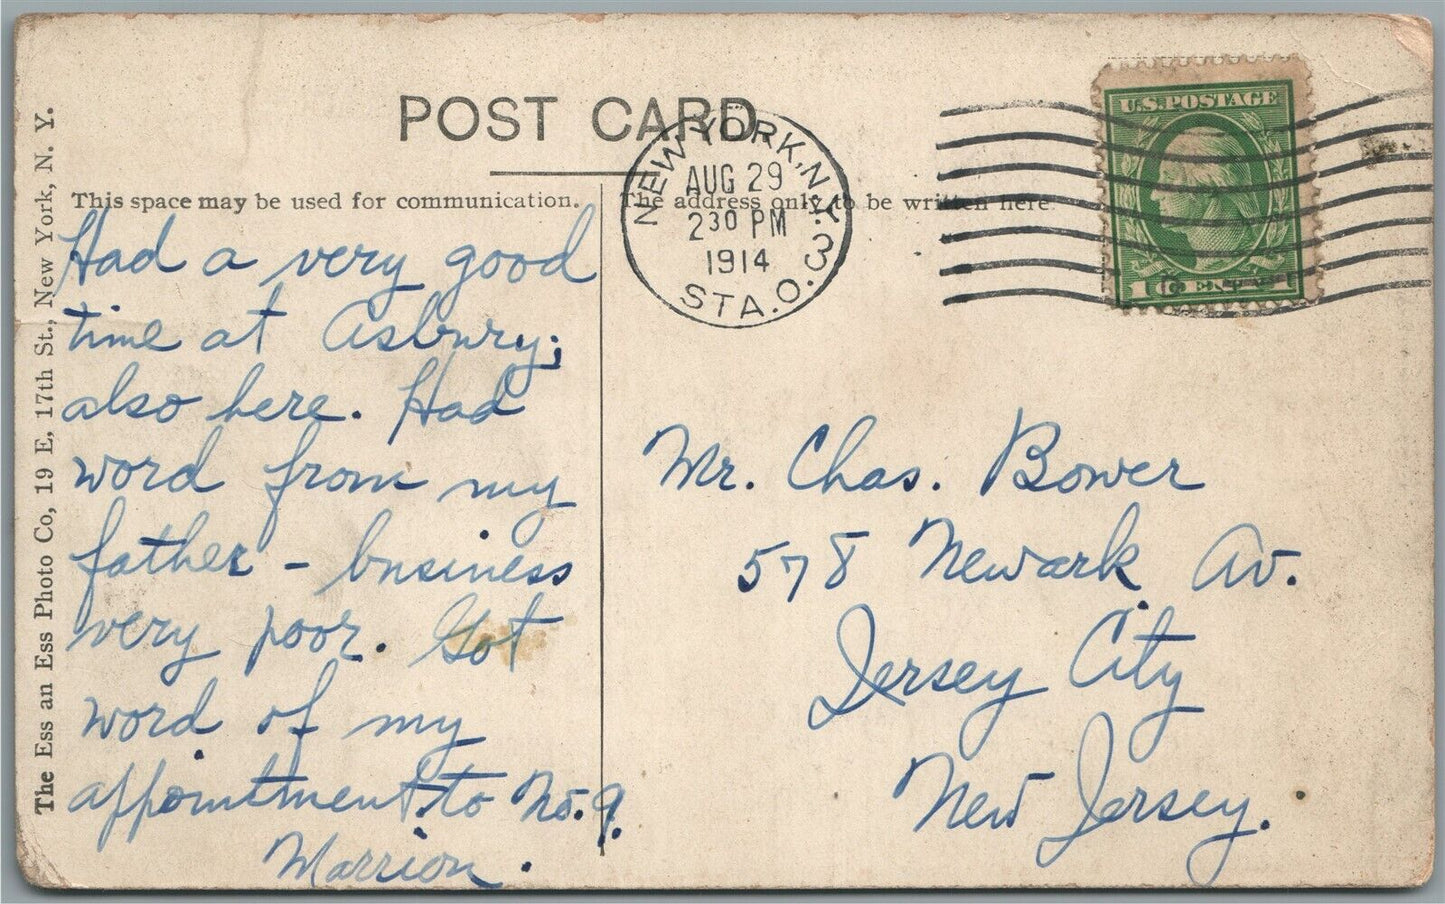 POST CARD
This space may be used for communication.
The address only to be written here
NEW YORK, N.Y.
AUG 29
2 30 PM
1914
STA. O. 3
U.S. POSTAGE
1 CENT 1
Had a very good
time at Asbury;
also here. Had
word from my
father – business
very poor. Got
word of my
appointment to No. 9.
Marrion.
Mr. Chas. Bower
578 Newark Av.
Jersey City
New Jersey.
The Ess an Ess Photo Co, 19 E, 17th St., New York, N. Y.